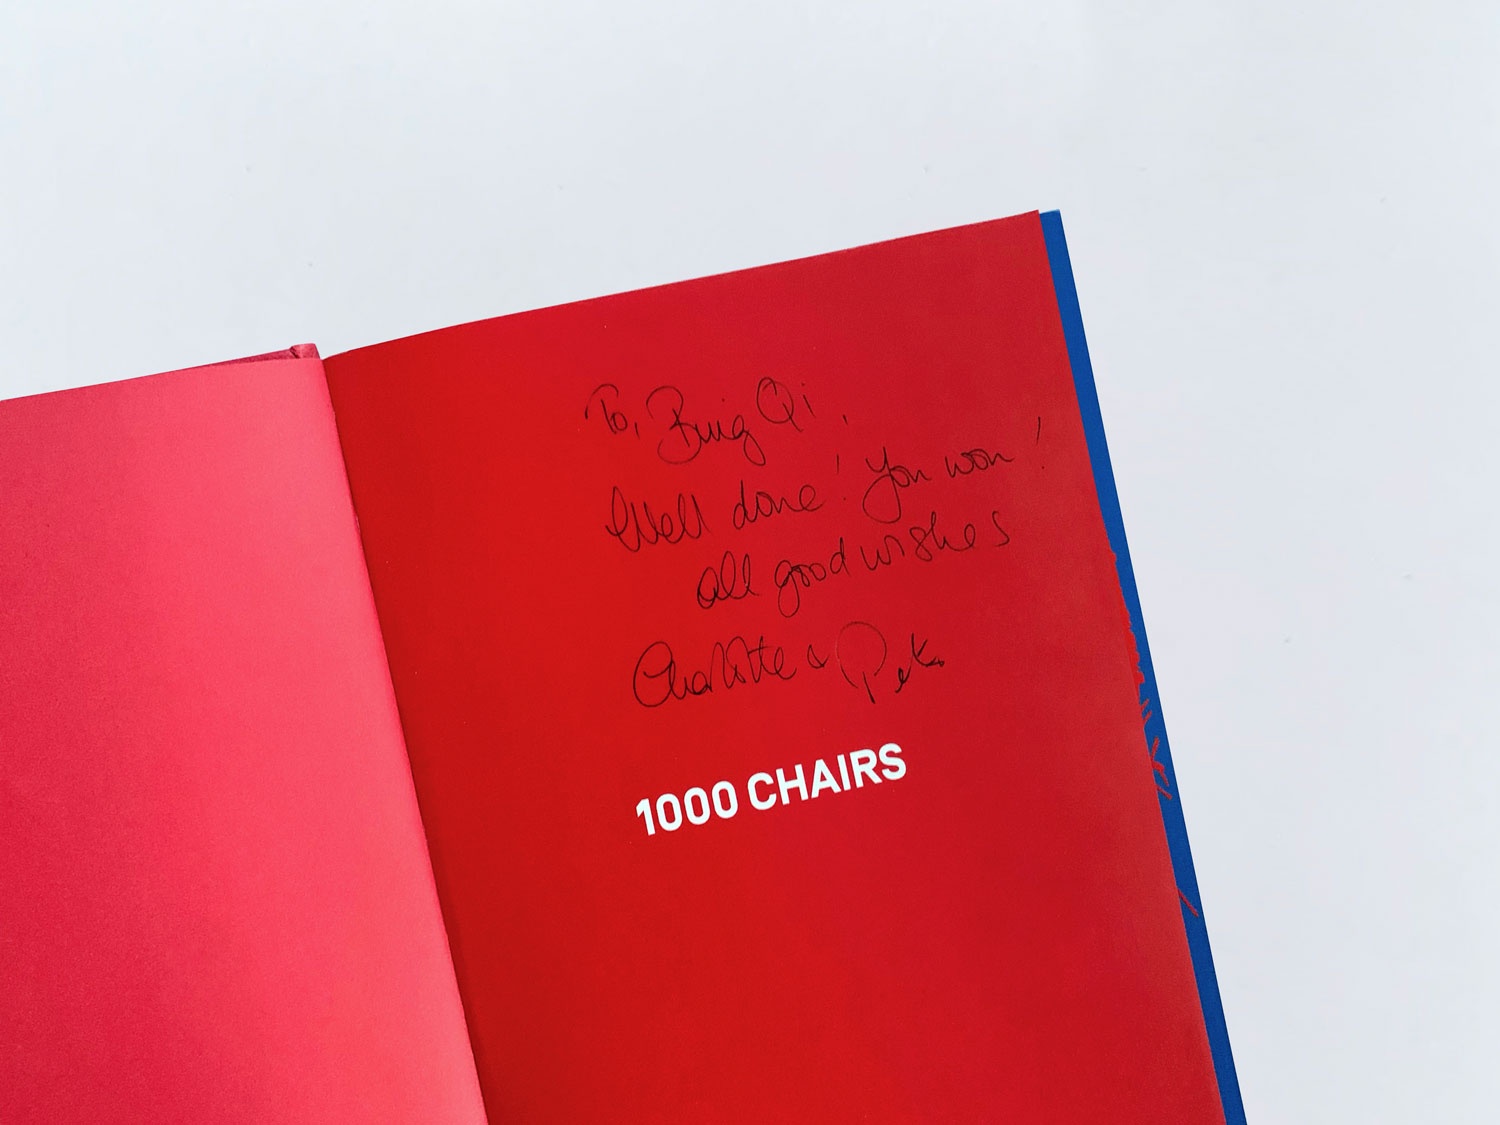 To, Bing Qi,
Well done! You won!
all good wishes
Charlotte & Peter
1000 CHAIRS